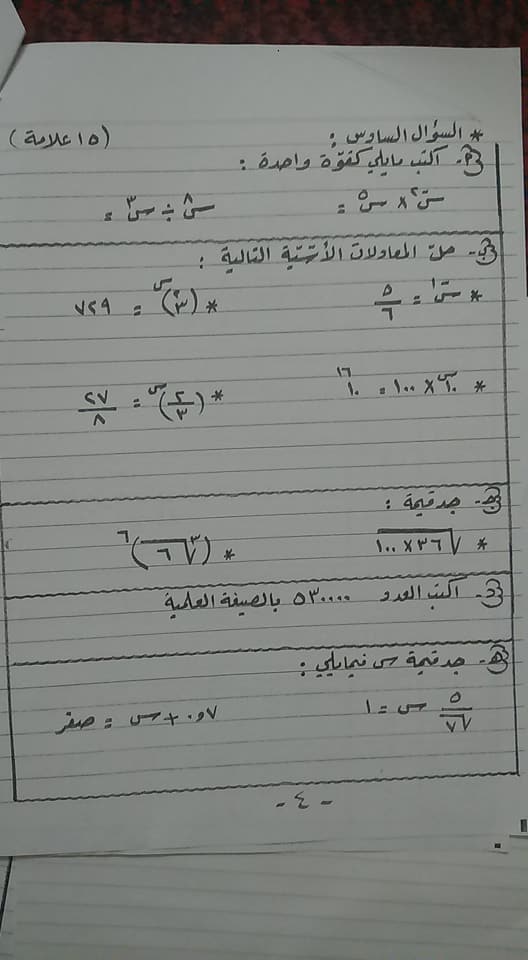 * السؤال السادس : (١٥ علامة)
أ- اكتب مايلي كقوة واحدة :
س² × س⁵ = س⁸ ÷ س³ =
ب- حل المعادلات الأسية التالية :
* س⁻¹ = ٥/٦ * (٣)^س = ٧٢٩
* ١٠^س × ١٠٠ = ١٠^١٦ * (٢/٣)^س = ٢٧/٨
ج- جد قيمة :
* √(٣٦ × ١٠٠) * (³√٦)^٦
د- اكتب العدد ٥٣٠٠٠٠ بالصيغة العلمية
هـ- جد قيمة س فيمايلي :
٥/√٧ س = ١ ٠,٧ + س = صفر
- ٤ -